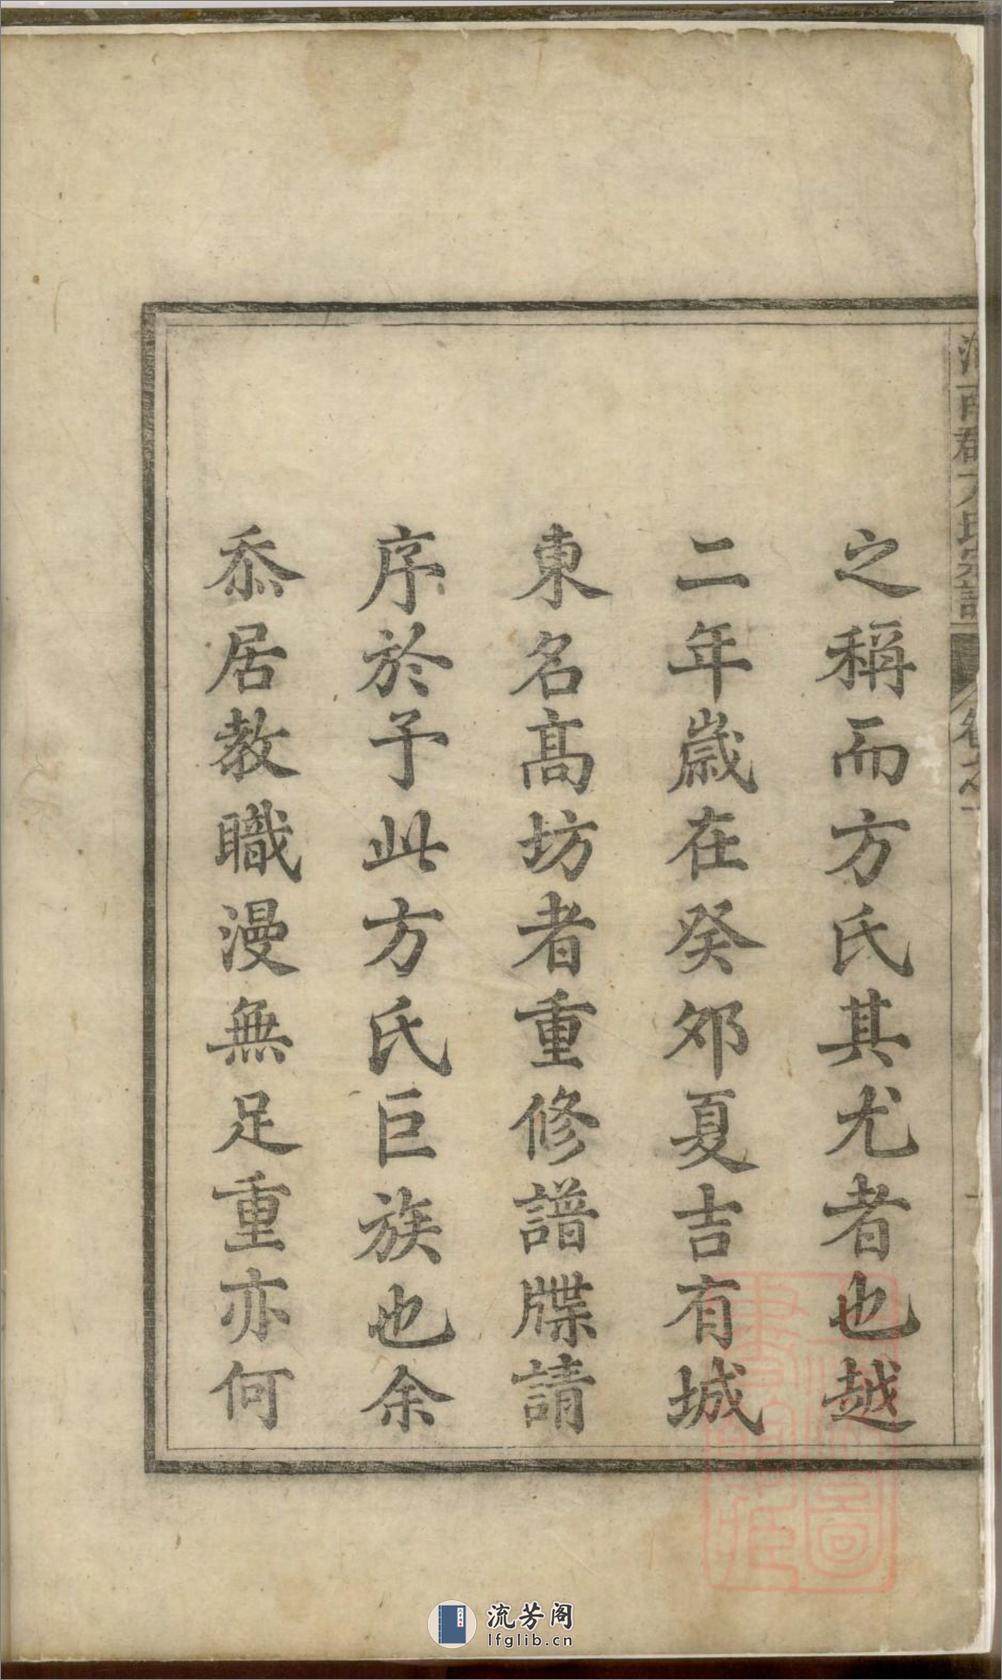 之稱而方氏其尤者也越
二年歲在癸夘夏吉有城
東名髙坊者重修譜牒請
序於予此方氏巨族也余
忝居教職漫無足重亦何
流芳阁
lfglib.cn